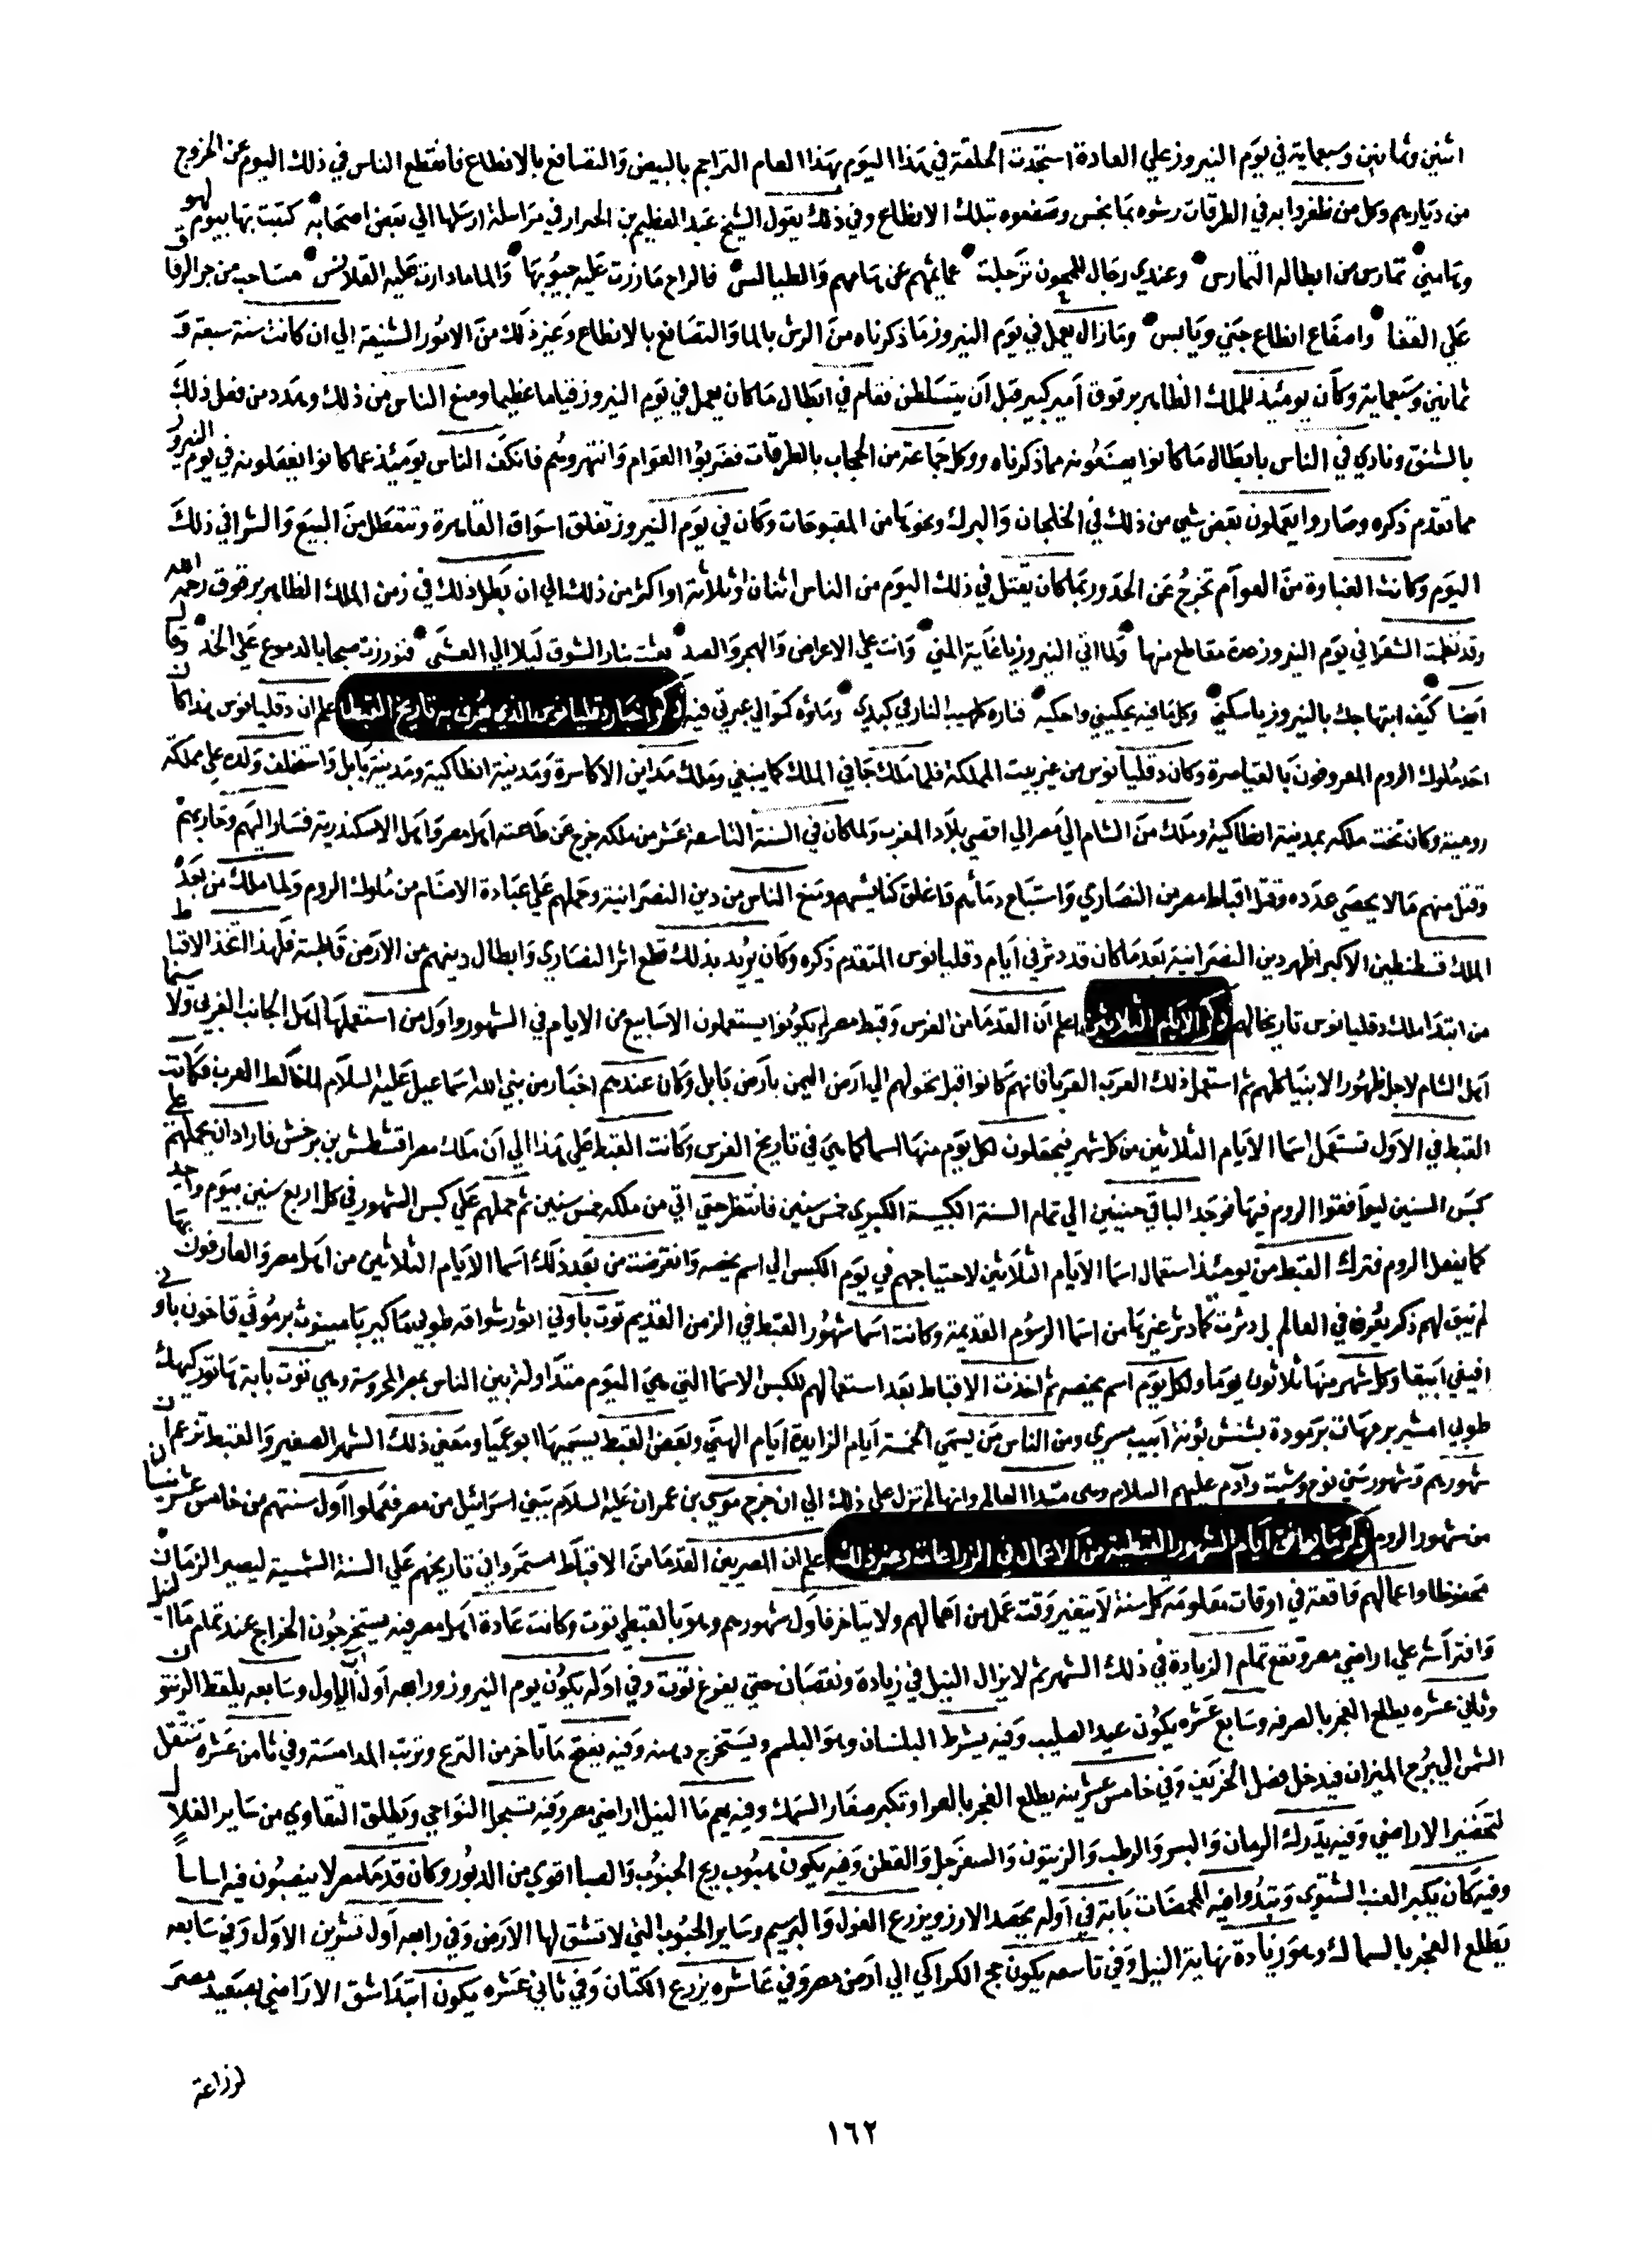 اثنين وثمانين وسبعماية في يوم النيروز علي العادة استجدت الحلقة في هذا اليوم بهذا العام التراجم بالبيض والتصافع بالانطاع فانقطع الناس في ذلك اليوم عن الخروج
من ديارهم وكل من ظفروا به في الطرقات رشوه بما نجس وصفعوه بتلك الانطاع وفي ذلك يقول الشيخ عبد العظيم بن الجزار في مراسلة ارسلها الي بعض اصحابه كتبت بها بيوم لهو
وهامتي تمارس من ابطاله التمارس وعندي رجال للمجون ترجلت عمايمهم عن هامهم والطيالس فالراح مازرت عليه جيوبها والماما دارت عليه القلانس مساحب من جر الزقاق
علي القفا واصفاع انطاع جني ويابس ومازال يعمل في يوم النيروز ما ذكرناه من الرش بالما والتصافع بالانطاع وغير ذلك من الامور الشنيعة الي ان كانت سنة سبعة و
ثمانين وسبعماية وكان يومئذ الملك الظاهر برقوق امير كبير قبل ان يتسلطن فقام في ابطال ما كان يعمل في يوم النيروز قياما عظيما ومنع الناس من ذلك وهدد من فعل ذلك
بالشنق ونادي في الناس بابطال ما كانوا يصنعونه مما ذكرناه ووكل جماعة من الحجاب بالطرقات فضربوا العوام وانتهروهم فانكف الناس يومئذ عما كانوا يفعلونه في يوم النيروز
مما تقدم ذكره وصاروا يعملون بعض شي من ذلك في الخلجان والبرك ونحوها من المفتوحات وكان في يوم النيروز تغلق اسواق القاهرة وتتعطل من البيع والشرا في ذلك
اليوم وكانت الغباوة من العوام تخرج عن الحد وربما كان يقتل في ذلك اليوم من الناس اثنان او ثلاثة او اكثر من ذلك الي ان بطل ذلك في زمن الملك الظاهر برقوق رحمه الله
وقد نظمت الشعرا في يوم النيروز عدة مقاطع منها ولما اتي النيروز يا غاية المني وانت علي الاعراض والهجر والصد بعثت بنار الشوق ليلا الي العشي فنورزت صبحا بالدموع علي الخد وقال
ايضا كيف ابتهاجك بالنيروز يا سكني وكل ما فيه يحكيني واحكيه فناره كلهيب النار في كبدي وماؤه كتوالي عبرتي فيه ذكر اخبار دقليانوس الذي يعرف به تاريخ القبط اعلم ان دقليانوس هذا كان
احد ملوك الروم المعروفون بالقياصرة وكان دقليانوس من غير بيت المملكة فلما ملك جافي الملك كما ينبغي وملك مداين الاكاسرة ومدينة انطاكية ومدينة بابل واستخلف ولده علي مملكة
رومية وكان تخت ملكه بمدينة انطاكية وملك من الشام الي مصر الي اقصي بلاد المغرب ولما كان في السنة التاسعة عشر من ملكه خرج عن طاعته اهل مصر واهل الاسكندرية فسار اليهم وحاربهم
وقتل منهم ما لا يحصي عدده وقتل اقباط مصر من النصاري واستباح دماهم واغلق كنايسهم ومنع الناس من دين النصرانية وحملهم علي عبادة الاصنام من ملوك الروم ولما ملك من بعده
الملك قسطنطين الاكبر اظهر دين النصرانية بعد ما كان قد دثر في ايام دقليانوس المتقدم ذكره وكان يريد بذلك قطع اثر النصاري وابطال دينهم من الارض قاطبة فلهذا اتخذ الاقباط
من ابتدا ملك دقليانوس تاريخا لهم ذكر الايام الثلاثين اعلم ان القدما من الفرس وقبط مصر لم يكونوا يستعملون الاسابيع من الايام في الشهور واول من استعملها اهل الجانب الغربي ولا سيما
اهل الشام لاجل ظهور الانبيا كلهم ثم استعمل ذلك العرب العربا فانهم كانوا قبل تحولهم الي ارض اليمن بارض بابل وكان عندهم اخبار من نبي الله اسماعيل عليه السلام لما خالط العرب فكانت
القبط في الاول تستعمل اسما الايام الثلاثين من كل شهر فيجعلون لكل يوم منها اسما كما هي في تاريخ الفرس وكانت القبط علي هذا الي ان ملك مصر اقشطش بن برخش فاراد ان يحملهم علي
كبس السنين ليوافقوا الروم فيها فوجد الباقي حينئين الي تمام السنة الكبيسة الكبري خمس سنين فانتظر حتي اتي من ملكه خمس سنين ثم حملهم علي كبس الشهور في كل اربع سنين بيوم واحد
كما يفعل الروم فترك القبط من يومئذ استعمال اسما الايام الثلاثين لاحتياجهم في يوم الكبس الي اسم يخصه وانقرضت من بعد ذلك اسما الايام الثلاثين من اهل مصر والعارفون بها
لم تبق لهم ذكر يعرف في العالم بل دثرت كما دثر غيرها من اسما الرسوم القديمة وكانت اسما شهور القبط في الزمن القديم توت باوني اثور شواق طوبي ماكير يامينوث برموثي قاخون باوني
افيفي ابيقا وكل شهر منها ثلاثون يوما ولكل يوم اسم يخصه ثم اخذت الاقباط بعد استعمالهم للكبس الاسما التي هي اليوم متداولة بين الناس بمصر المحروسة وهي توت بابة هاتور كيهك
طوبي امشير برمهات برمودة بشنش بؤنة ابيب مسري ومن الناس من يسمي الخمسة ايام الزايدة ايام النسي وبعض القبط يسميها ابوعميا ومعني ذلك الشهر الصغير والقبط تزعم ان
شهورهم شهور سني نوح وشيت وآدم عليهم السلام وهي مبتدا العالم وانها لم تزل علي ذلك الي ان خرج موسي بن عمران عليه السلام ببني اسرائيل من مصر فعملوا اول سنتهم من خامس عشر نيسان
من شهور الروم ذكر ما يوافق ايام الشهور القبطية من الاعمال في الزراعات وغير ذلك اعلم ان المصريين القدما من الاقباط استمروا في تاريخهم علي السنة الشمسية ليصير الزمان
محفوظا واعمالهم واقعة في اوقات معلومة كل سنة لا يتغير وقت عمل من اعمالهم ولا يتاخر فاول شهورهم وهو بالقبطي توت وكانت عادة اهل مصر فيه يستخرجون الخراج عند تمام ما النيل
وافتراشه علي اراضي مصر وتقع تمام الزيادة في ذلك الشهر ثم لا يزال النيل في زيادة ونقصان حتي يفرغ توت وفي اوله يكون يوم النيروز ورابعه اول ايلول وسابعه يلقط الزيتون
وثاني عشره يطلع الفجر بالصرفه وسابع عشره يكون عيد الصليب وفيه يشرط البلسان وهو البلسم ويستخرج دهنه وفيه يفتح ما تاخر من الترع وترتب المدامسة وفي ثامن عشره تنتقل
الشمس الي برج الميزان فيدخل فصل الخريف وفي خامس عشرينه يطلع الفجر بالعوا وتكبر صغار السمك وفيه يعم ما النيل اراضي مصر وفيه تسجل النواحي وتطلق التقاوي من ساير الغلال
لتحضير الاراضي وفيه يدرك الرمان والبسر والرطب والزيتون والسفرجل والقطن وفيه يكون هبوب ريح الجنوب والصبا اقوي من الدبور وكان قدما مصر لا ينصبون فيه اساسا
وفيه كان يكبر العنب الشتوي وتبدوا فيه المحمضات بابة في اوله يحصد الارز ويزرع الفول والبرسيم وساير الحبوب التي لا تشق لها الارض وفي رابعه اول تشرين الاول وفي سابعه
يطلع الفجر بالسماك وهو زيادة نهاية النيل وفي تاسعه يكون مجي الكراكي الي ارض مصر وفي عاشره يزرع الكتان وفي ثاني عشره يكون ابتدا شق الاراضي بصعيد مصر
لزراعة
١٦٢